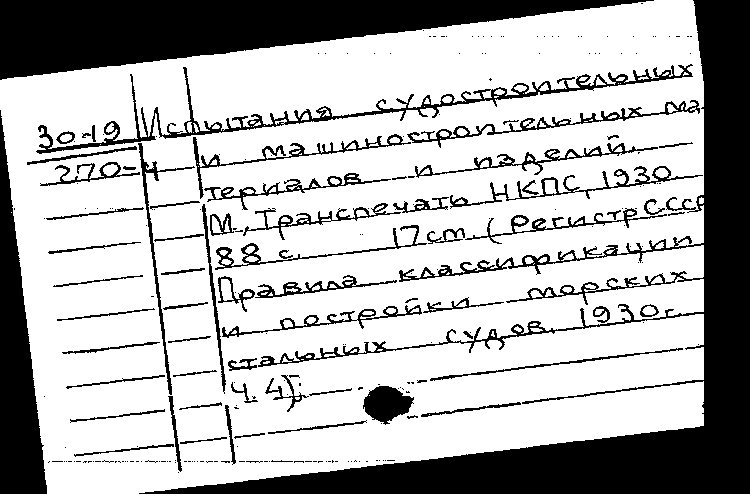 30-19 Испытания судостроительных
270-4 и машиностроительных ма-
териалов и изделий.
М., Транспечать НКПС, 1930
88 с. 17 см. (Регистр СССР
Правила классификации
и постройки морских
стальных судов. 1930г.
Ч. 4).